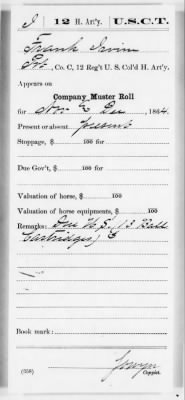 I 12 H. Art'y. U.S.C.T.
Frank Irvin
Pvt, Co. C, 12 Reg't U. S. Col'd H. Art'y.
Appears on
Company Muster Roll
for Nov & Dec, 1864.
Present or absent, present
Stoppage, $ 100 for
Due Gov't, $ 100 for
Valuation of horse, $ 100
Valuation of horse equipments, $ 100
Remarks: Due U.S., 13 Ball
Cartridges,
Book mark:
(358)
Copyist.